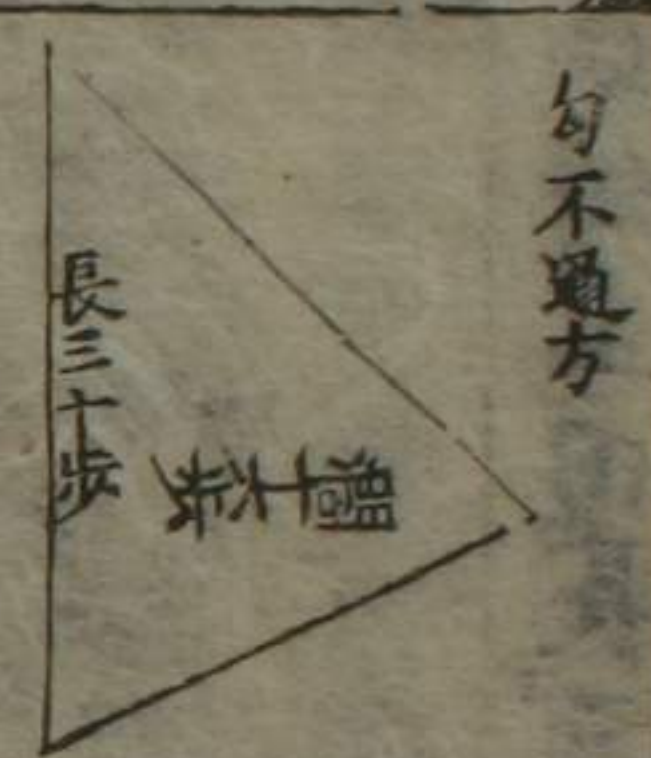 勾不通方
長三十步
闊十六步